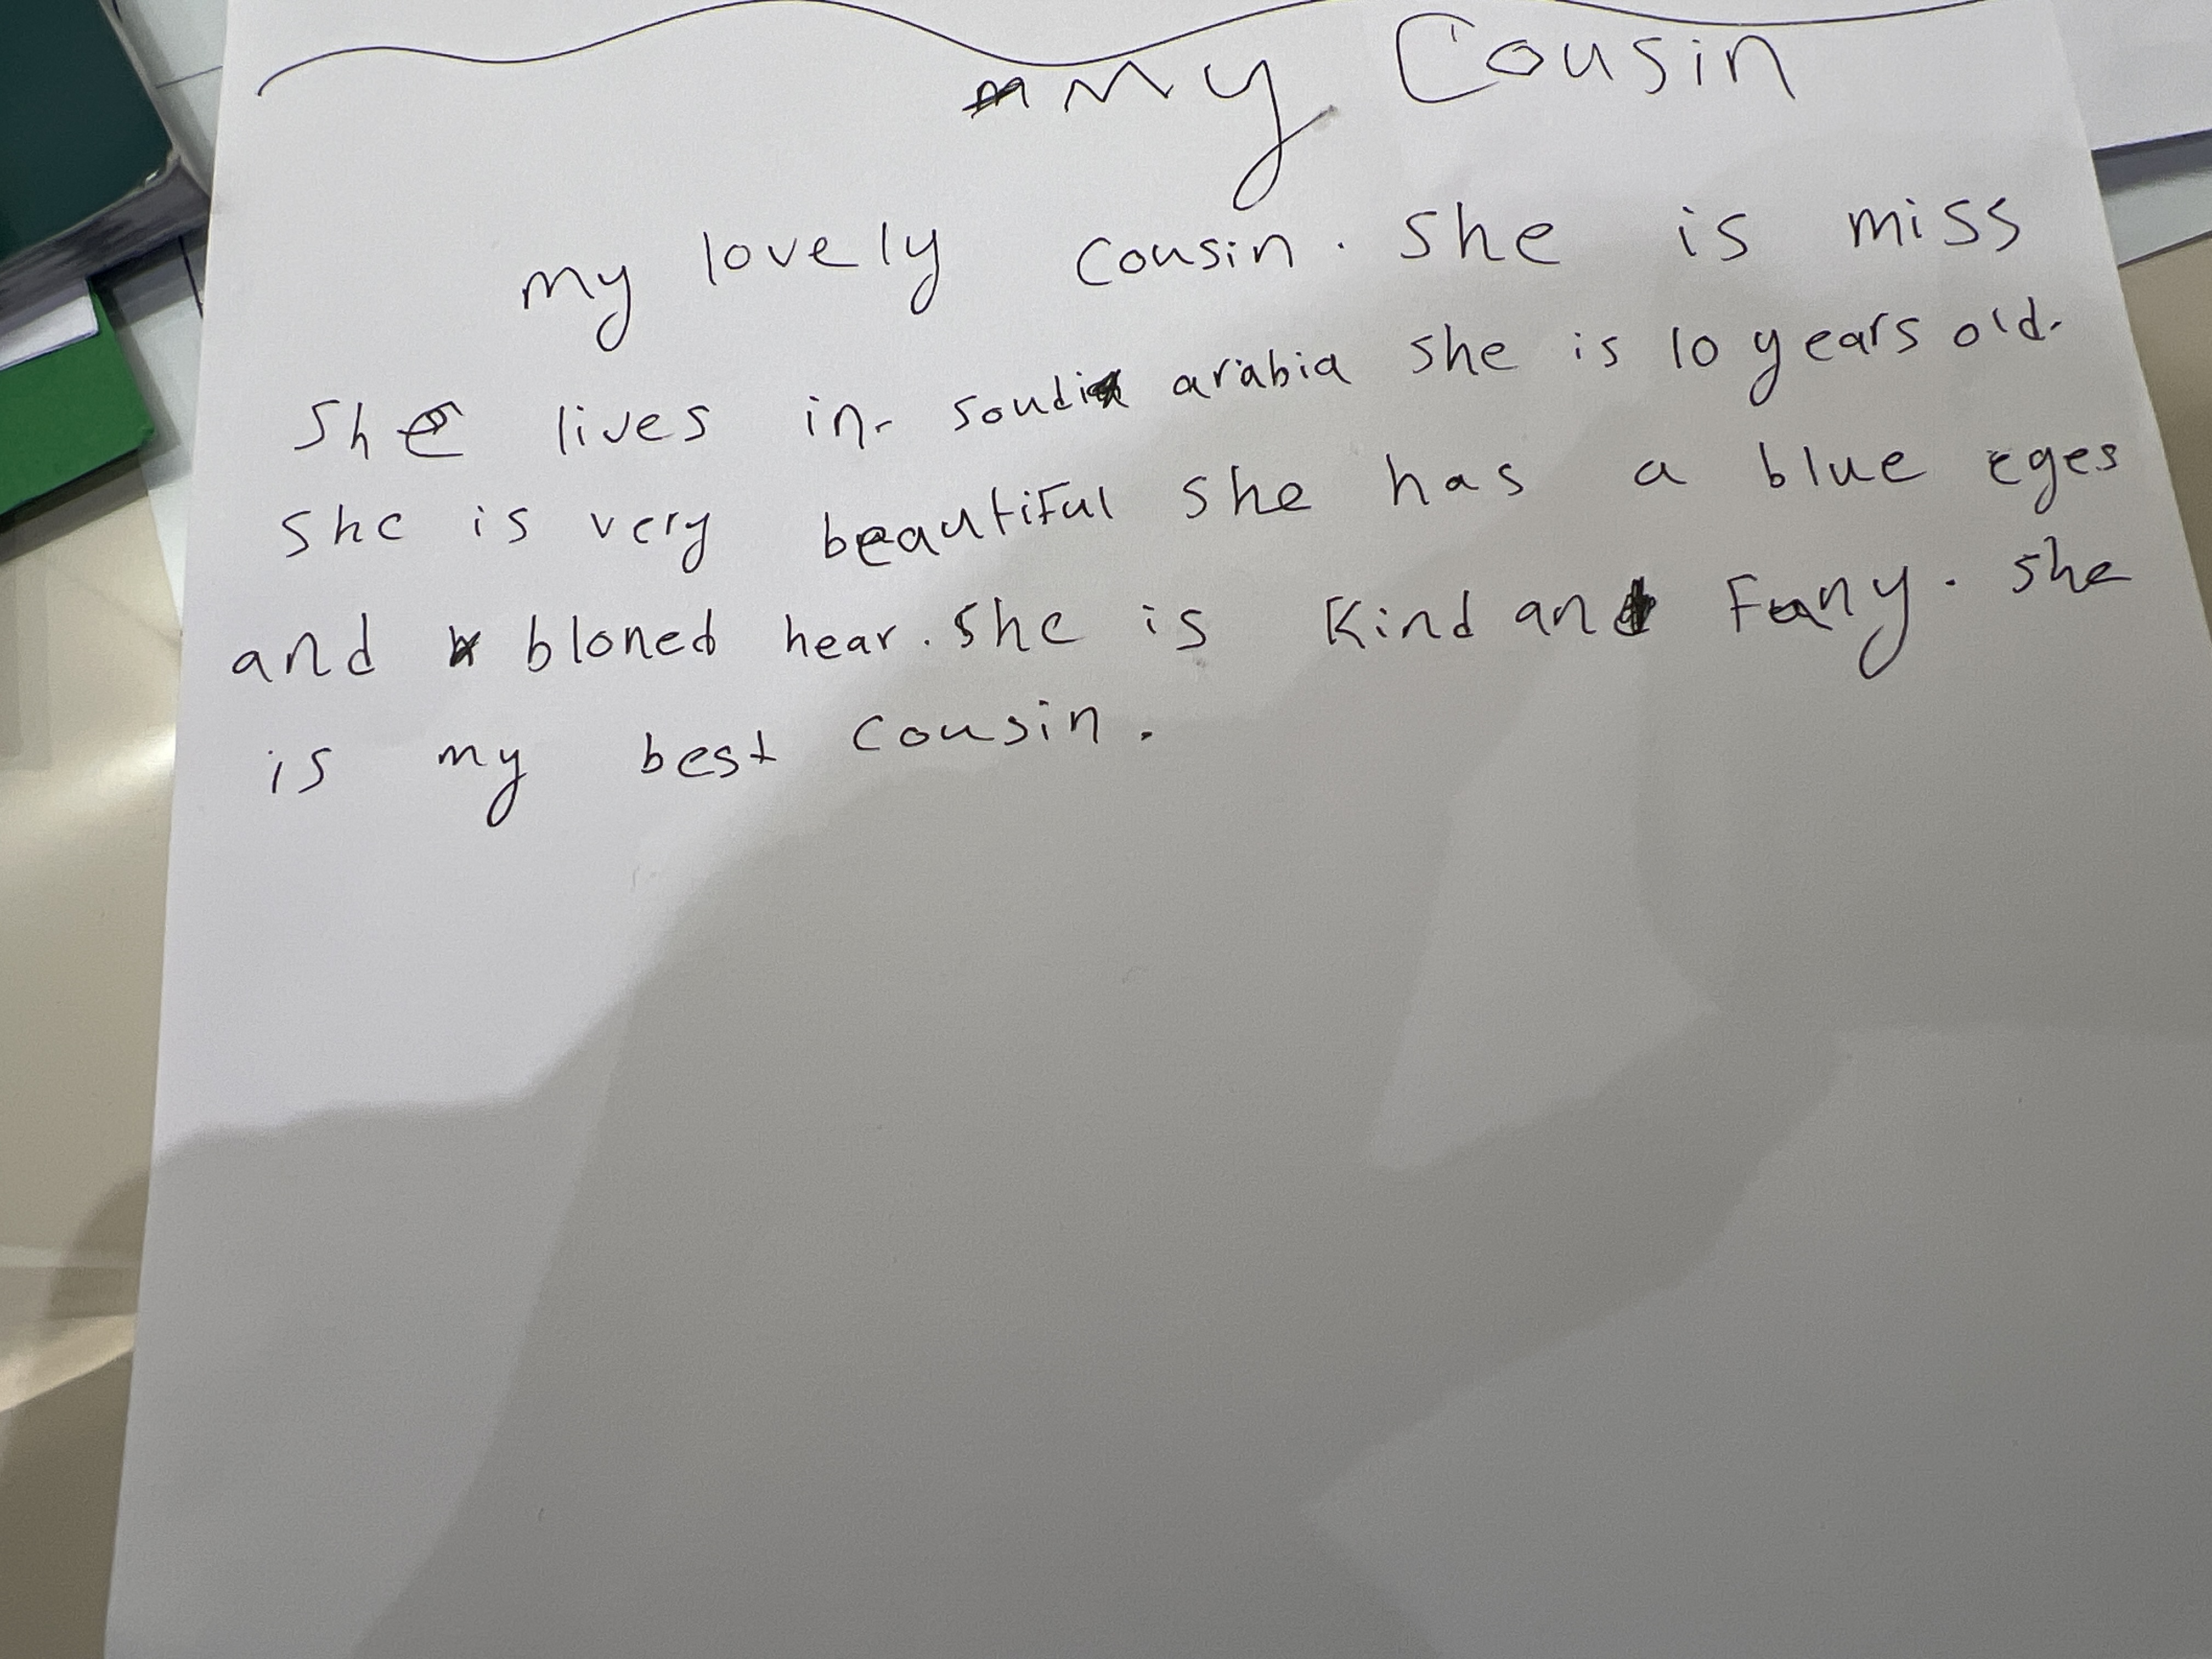 My Cousin
my lovely cousin. she is miss
she lives in soudi arabia she is 10 years old.
she is very beautiful she has a blue eges
and bloned hear. she is Kind and Funy. she
is my best cousin.